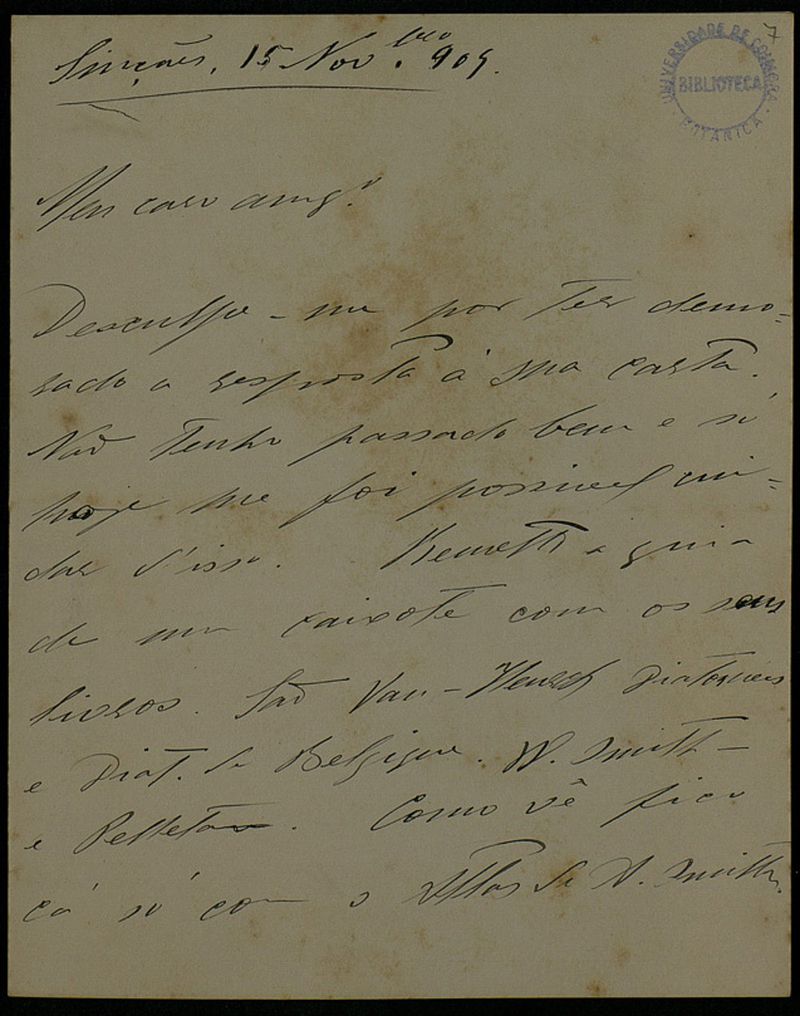 7
UNIVERSIDADE DE COIMBRA
BIBLIOTECA
BOTANICA
Sinçães, 15 Nov.bro 909.
Meu caro amgº
Desculpe-me por ter demo-
rado a resposta á sua carta.
Não tenho passado bem e só
hoje me foi possivel cui-
dar d'isso. Remetto a guia
de um caixote com os seus
livros. São Van-Heurck Diatomées
e Diat. de Belgique. W. Smith -
e Pelletan. Como vê fico
cá só com o Atlas de A. Smith.